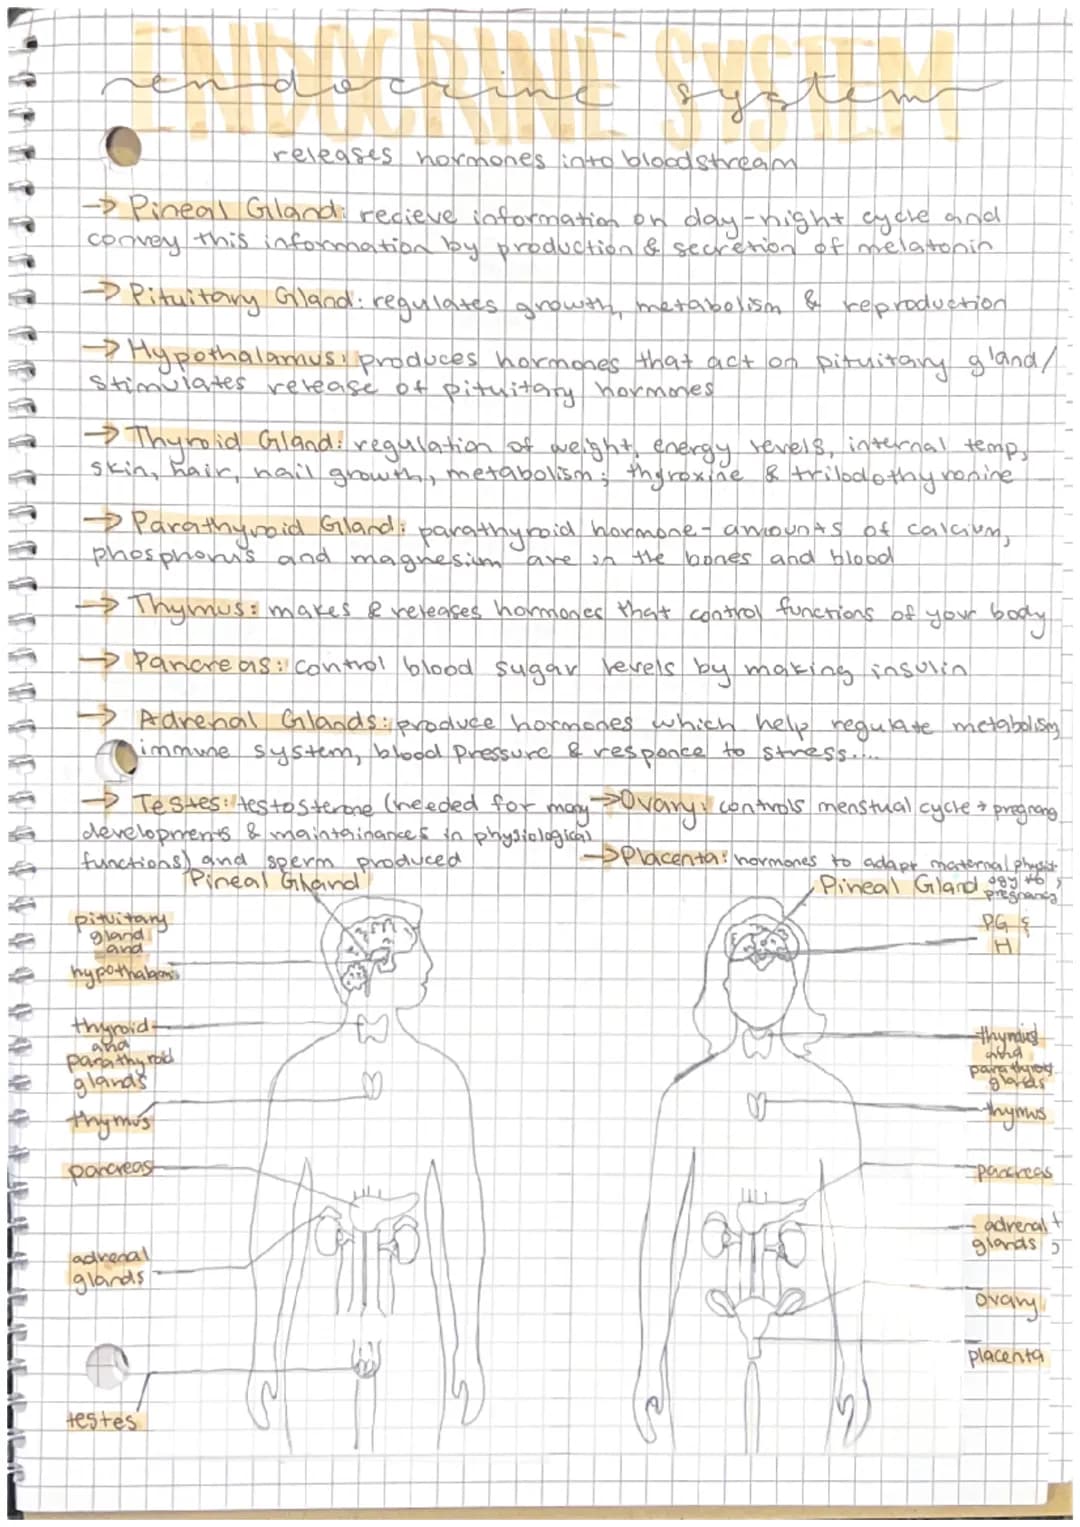 ENDOCRINE SYSTEM
endocrine system
releases hormones into bloodstream
→ Pineal Gland: recieve information on day-night cycle and
convey this information by production & secretion of melatonin
→ Pituitary Gland: regulates growth, metabolism & reproduction
→ Hypothalamus: produces hormones that act on pituitary gland/
stimulates release of pituitary hormones
→ Thyroid Gland: regulation of weight, energy levels, internal temp,
skin, hair, nail growth, metabolism; thyroxine & triiodothyronine
→ Parathyroid Gland: parathyroid hormone - amounts of calcium,
phosphorus and magnesium are in the bones and blood
→ Thymus: makes & releases hormones that control functions of your body
→ Pancreas: control blood sugar levels by making insulin
→ Adrenal Glands: produce hormones which help regulate metabolism,
immune system, blood pressure & responce to stress....
→ Testes: testosterone (needed for many
developments & maintainances in physiological
functions) and sperm produced
→ Ovary: controls menstual cycle + pregnancy
→ Placenta: hormones to adapt maternal physiol-
ogy to pregnancy
Pineal Gland
pituitary
gland
and
hypothalamus
thyroid
and
parathyroid
glands
thymus
pancreas
adrenal
glands
testes
Pineal Gland
PG &
H
thyroid
and
parathyroid
glands
thymus
pancreas
adrenal
glands
ovary
placenta